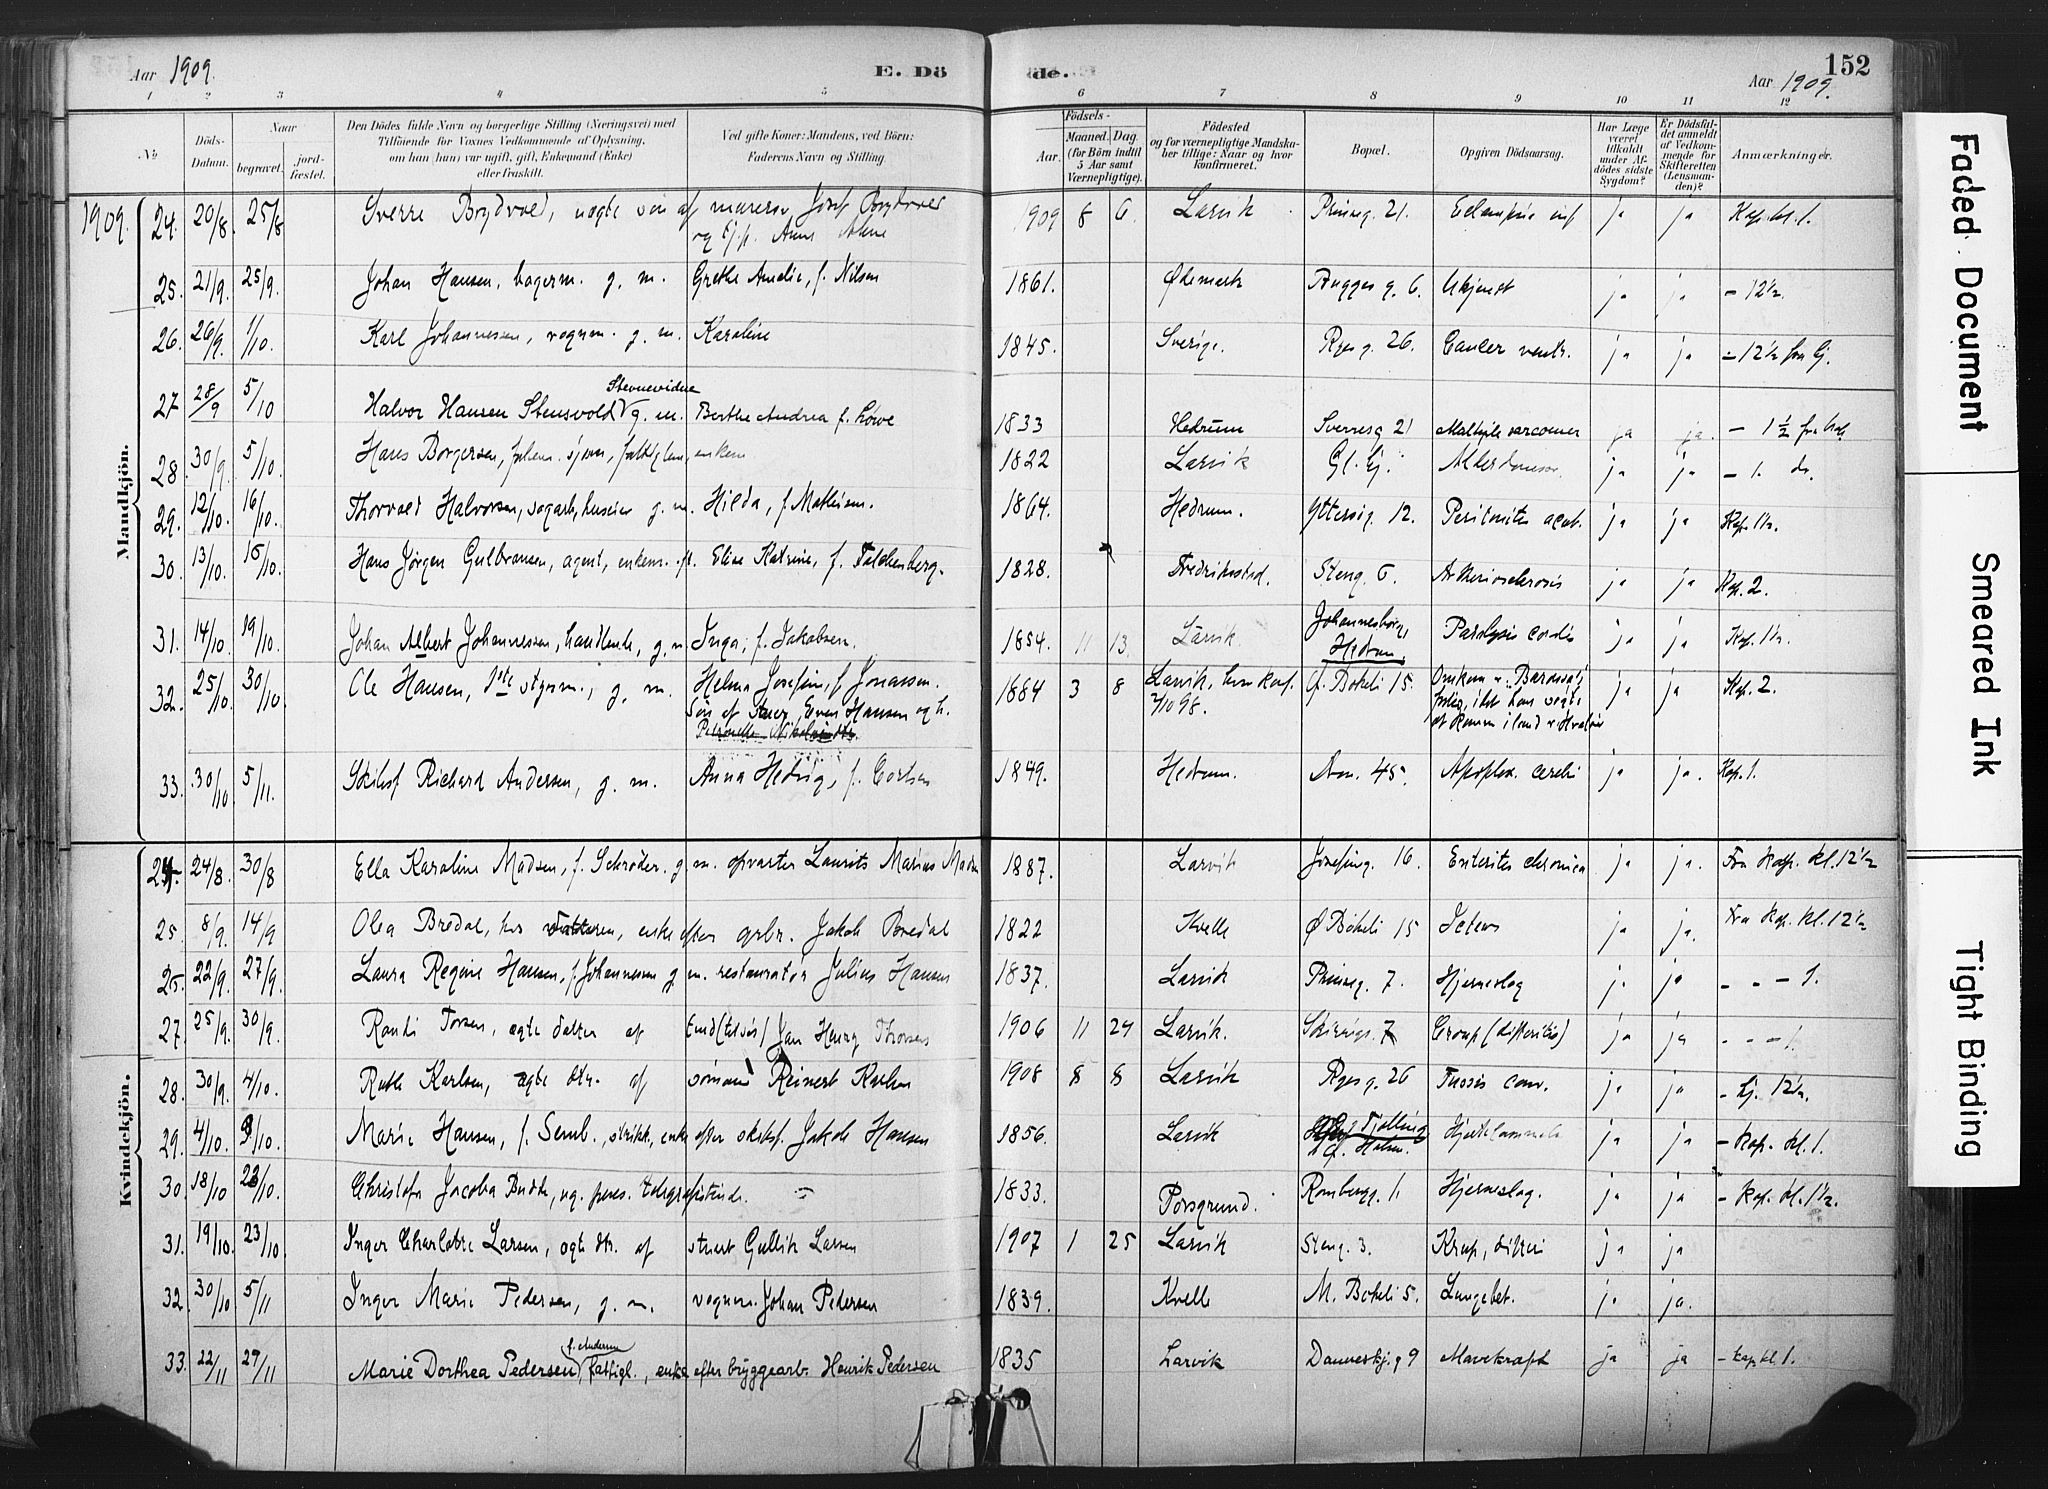 Aar 1909.
E. Dö
de.
152
Aar 1909.
1 2 3 4 5 6 7 8 9 10 11 12
No
Döds-Datum.
Naar
begravet.
jord-fæstet.
Den Dödes fulde Navn og borgerlige Stilling (Næringsvei) med Tilföiende for Voxnes Vedkommende af Oplysning, om han (hun) var ugift, gift, Enkemand (Enke) eller fraskilt.
Ved gifte Koner: Mandens, ved Börn: Faderens Navn og Stilling.
Födsels-
Aar.
Maaned.
Dag.
(for Börn indtil 5 Aar samt Værnepligtige).
Födested og for værnepligtige Mandskaber tillige: Naar og hvor konfirmeret.
Bopæl.
Opgiven Dödsaarsag.
Har Læge været tilkaldt under Afdödes sidste Sygdom?
Er Dödsfaldet anmeldt af Vedkommende for Skifteretten (Lensmanden)?
Anmærkninger.
1909.
Mandkjön.
24. 20/8. 25/8 Sverre Brydvold, ægte søn af murersv. Josef Brydvold 1909 8 6. Larvik Prinseg. 21. Eclampsie inf ja ja Kap. kl. 1.
og Anna
25. 21/9. 25/9. Johan Hansen, bagerm. g. m. Grethe Amalie, f. Nilsen 1861. Ødemark Bugges g. 6. Ukjendt ja ja - 12½.
26. 26/9. 1/10. Karl Johannessen, vognm. g. m. Karoline 1845. Sverige. Ryes g. 26. Cancer ventr. ja ja - 12½ fra hj.
Stevnevidne
27 28/9 5/10 Halvor Hansen Stensvold g. m. Berthe Andrea f. Løwe 1833 Hedrum Sverresg 21 Multiple sarcomer ja ja. - 1½ fra
28. 30/9. 5/10. Hans Borgersen, sjøm., fattiglem, enkem 1822 Larvik Gl. hj. Alderdomssv. ja ja - 1. do.
29. 12/10. 16/10. Thorvald Halvorsen, g. m. Hilda, f. Mathisen. 1864. Hedrum. Ytterøig. 12. Peritonites acut. ja ja Kap. 1½.
30. 13/10. 15/10. Hans Jørgen Gulbransen, agent, enkem. eft. Elise Katrine, f. Falchenberg. 1828. Fredrikstad. Steng. 6. Arteriosclerosis ja ja Kap. 2.
31. 14/10. 19/10. Johan Albert Johannessen, handlende, g. m. Inga, f. Jakobsen. 1854. 11 13. Larvik Johannesborg, Hedrum. Paralysis cordis ja ja Kap. 1½.
32. 25/10. 30/10. Ole Hansen, 1ste styrm., g. m. Helma Josefine, f. Jonassen. 1884 3 8 Larvik, Ø. Bøkeli 15. ja ja Kap. 2.
Søn af Even Hansen og h. 2/10 98.
33. 30/10. 5/11. Skibsf. Richard Andersen, g. m. Anna Hedvig, f. 1849. Hedrum. 45. Apoplex. cerebri ja ja. Kap. 1.
Kvindekjön.
24. 24/8. 30/8 Ella Karoline Madsen, f. Schrøder. g. m. opvarter Laurits Marius Madsen 1887. Larvik Josefineg. 16. Enterites chronica ja ja. Fra kap. kl. 12½
25. 8/9. 14/9 Olea Bredal, hos datteren, enke efter grbr. Jakob Bredal 1822 Kvelle Ø Bøkeli 15 Icterus ja ja. Fra kap. kl. 12½
25. 22/9. 27/9. Laura Regine Hansen, f. Johannessen g. m. restauratør Julius Hansen 1837. Larvik Prinseg. 7. Hjerneslag ja ja - - - 1.
27. 25/9. 30/9. Randi Torsen, ægte datter af Jan Henry Thorsen 1906 11 24 Larvik. 7 Croup (difteritis) ja ja - - - 1.
28. 30/9. 4/10. Ruth Karlsen, ægte dtr. af sømand Reinert Karlsen 1908 8 8 Larvik Ryes g. 26 Tussis conv. ja ja - hj. 12½.
29. 4/10. 9/10. Marie Hansen, f. Semb., enke efter skibsf. Jakob Hansen 1856. Larvik Tjølling Holm. ja ja - kap. kl. 1.
30. 18/10 23/10. Christofa Jacoba Budde, ug. pens. telegrafistinde. 1833. Porsgrund. Rombergg. 1. Hjerneslag. ja ja - kap. kl. 1½.
31. 19/10. 23/10 Inger Charlotte Larsen, ægte dtr. af stuert Gullik Larsen 1907 1 25 Larvik Steng. 3. Krup, difteri ja ja
32. 30/10 5/11 Inger Marie Pedersen, g. m. vognm. Johan Pedersen 1839. Kvelle M. Bøkeli 5. Lungebet. ja ja.
f. Andersen
33. 22/11 27/11 Marie Dorthea Pedersen, fattigl., enke efter bryggearb. Henrik Pedersen 1835 Larvik Danneskj. g 9 Mavekræft ja ja - kap kl. 1.
Faded Document
Smeared Ink
Tight Binding